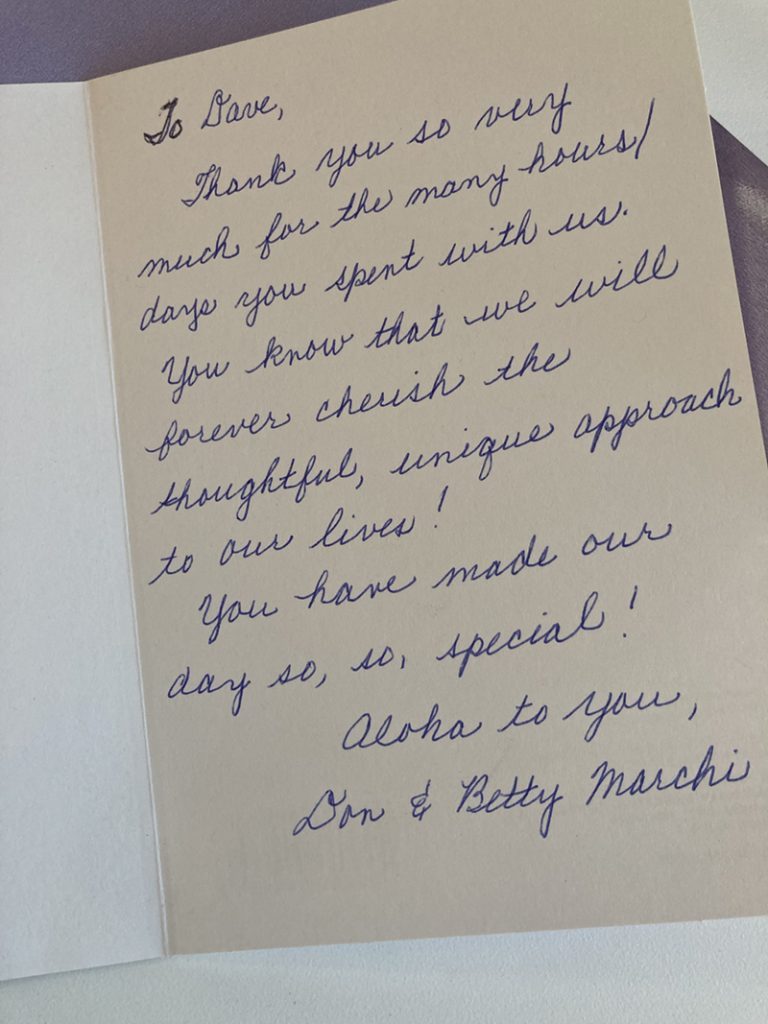 To Dave,
Thank you so very
much for the many hours/
days you spent with us.
You know that we will
forever cherish the
thoughtful, unique approach
to our lives!
You have made our
day so, so, special!
Aloha to you,
Don & Betty Marchi